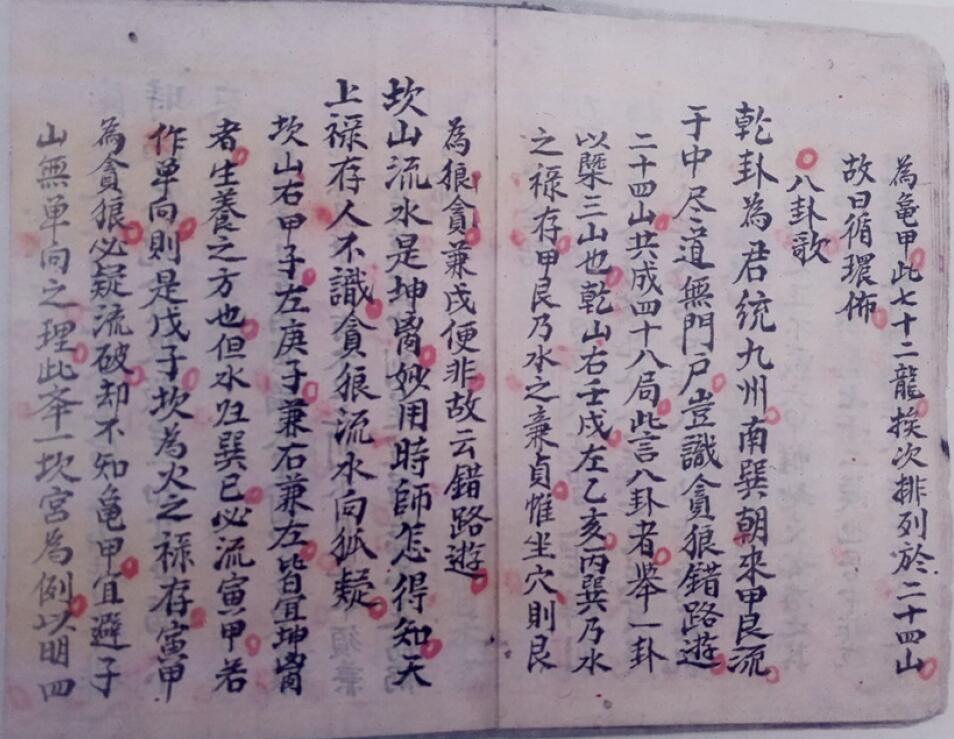 為亀甲此七十二龍挨次排列於二十四山
故曰循環佈
八卦歌
乾卦為君統九州南巽朝來甲艮流
于中尽道無門戶豈識貪狼錯路遊
二十四山共成四十八局此言八卦者举一卦
以槩三山也乾山右壬戍左乙亥丙巽乃水
之祿存甲艮乃水之亷貞惟坐穴則艮
為狼貪兼戍便非故云錯路遊
坎山流水是坤离妙用時師怎得知天
上祿存人不識貪狼流水向狐疑
坎山右甲子左庚子兼右兼左皆宜坤离
者生養之方也但水归巽巳必流寅甲若
作单向則是戊子坎為火之祿存寅甲
為貪狼必疑流破却不知亀甲宜避子
山無单向之理此夲一坎宮為例以明四